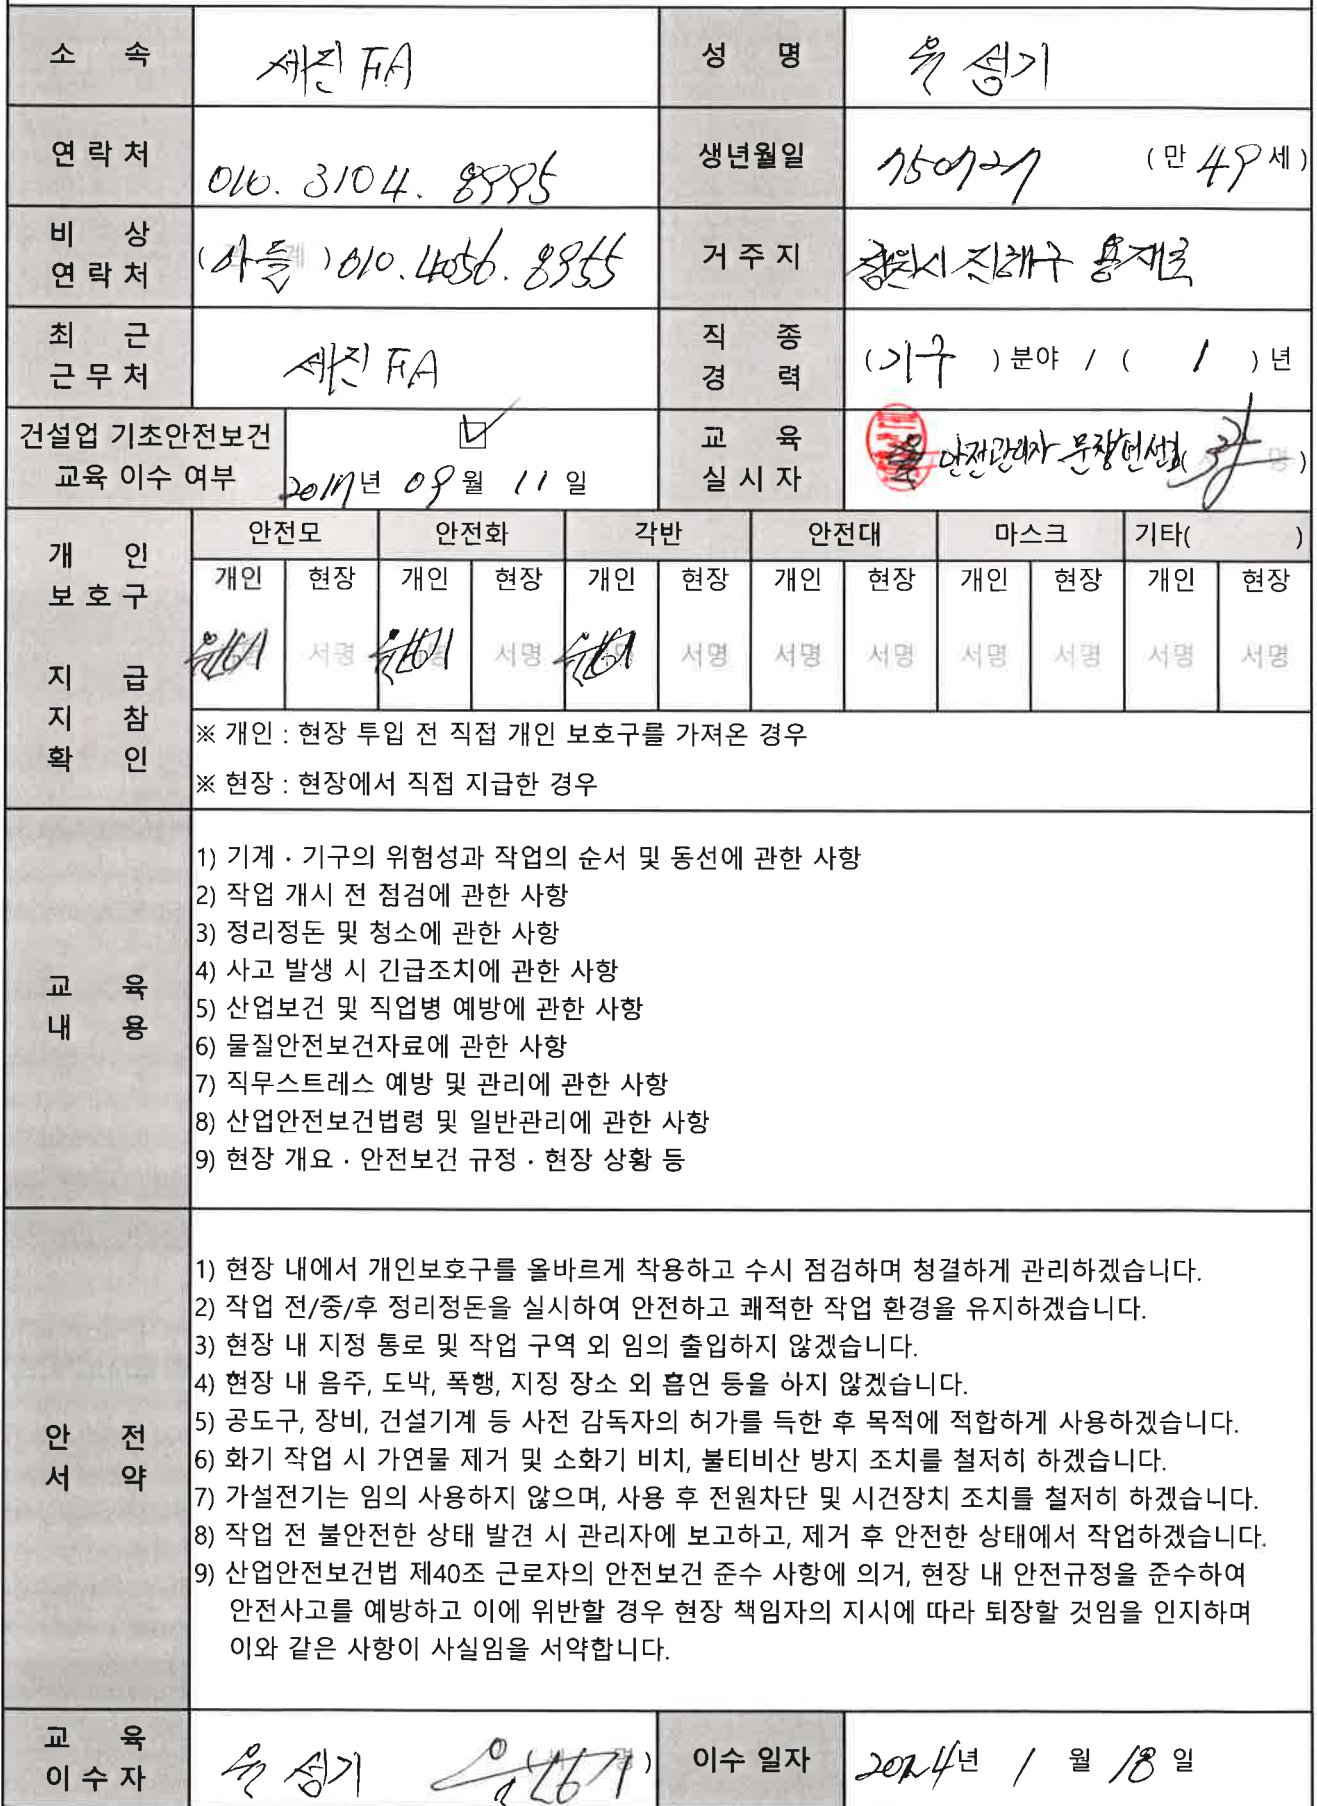 소 속 세진 FA 성 명 윤 성기
연 락 처 010. 3104. 8995 생년월일 750727 ( 만 49 세 )
비 상 연 락 처 ( 아들 ) 010. 4056. 8955 거 주 지 창원시 진해구 용재로
최 근 근 무 처 세진 FA 직 종 경 력 ( 기구 ) 분야 / ( 1 ) 년
건설업 기초안전보건 교육 이수 여부 2017년 09 월 11 일 교 육 실 시 자 안전관리자
개 인 보 호 구 지 급 지 참 확 인
안전모 안전화 각반 안전대 마스크 기타( )
개인 현장 개인 현장 개인 현장 개인 현장 개인 현장 개인 현장
서명 서명 서명 서명 서명 서명 서명 서명 서명
※ 개인 : 현장 투입 전 직접 개인 보호구를 가져온 경우
※ 현장 : 현장에서 직접 지급한 경우
교 육 내 용
1) 기계 · 기구의 위험성과 작업의 순서 및 동선에 관한 사항
2) 작업 개시 전 점검에 관한 사항
3) 정리정돈 및 청소에 관한 사항
4) 사고 발생 시 긴급조치에 관한 사항
5) 산업보건 및 직업병 예방에 관한 사항
6) 물질안전보건자료에 관한 사항
7) 직무스트레스 예방 및 관리에 관한 사항
8) 산업안전보건법령 및 일반관리에 관한 사항
9) 현장 개요 · 안전보건 규정 · 현장 상황 등
안 전 서 약
1) 현장 내에서 개인보호구를 올바르게 착용하고 수시 점검하며 청결하게 관리하겠습니다.
2) 작업 전/중/후 정리정돈을 실시하여 안전하고 쾌적한 작업 환경을 유지하겠습니다.
3) 현장 내 지정 통로 및 작업 구역 외 임의 출입하지 않겠습니다.
4) 현장 내 음주, 도박, 폭행, 지정 장소 외 흡연 등을 하지 않겠습니다.
5) 공도구, 장비, 건설기계 등 사전 감독자의 허가를 득한 후 목적에 적합하게 사용하겠습니다.
6) 화기 작업 시 가연물 제거 및 소화기 비치, 불티비산 방지 조치를 철저히 하겠습니다.
7) 가설전기는 임의 사용하지 않으며, 사용 후 전원차단 및 시건장치 조치를 철저히 하겠습니다.
8) 작업 전 불안전한 상태 발견 시 관리자에 보고하고, 제거 후 안전한 상태에서 작업하겠습니다.
9) 산업안전보건법 제40조 근로자의 안전보건 준수 사항에 의거, 현장 내 안전규정을 준수하여
안전사고를 예방하고 이에 위반할 경우 현장 책임자의 지시에 따라 퇴장할 것임을 인지하며
이와 같은 사항이 사실임을 서약합니다.
교 육 이 수 자 윤 성기 이수 일자 2024년 1 월 18 일